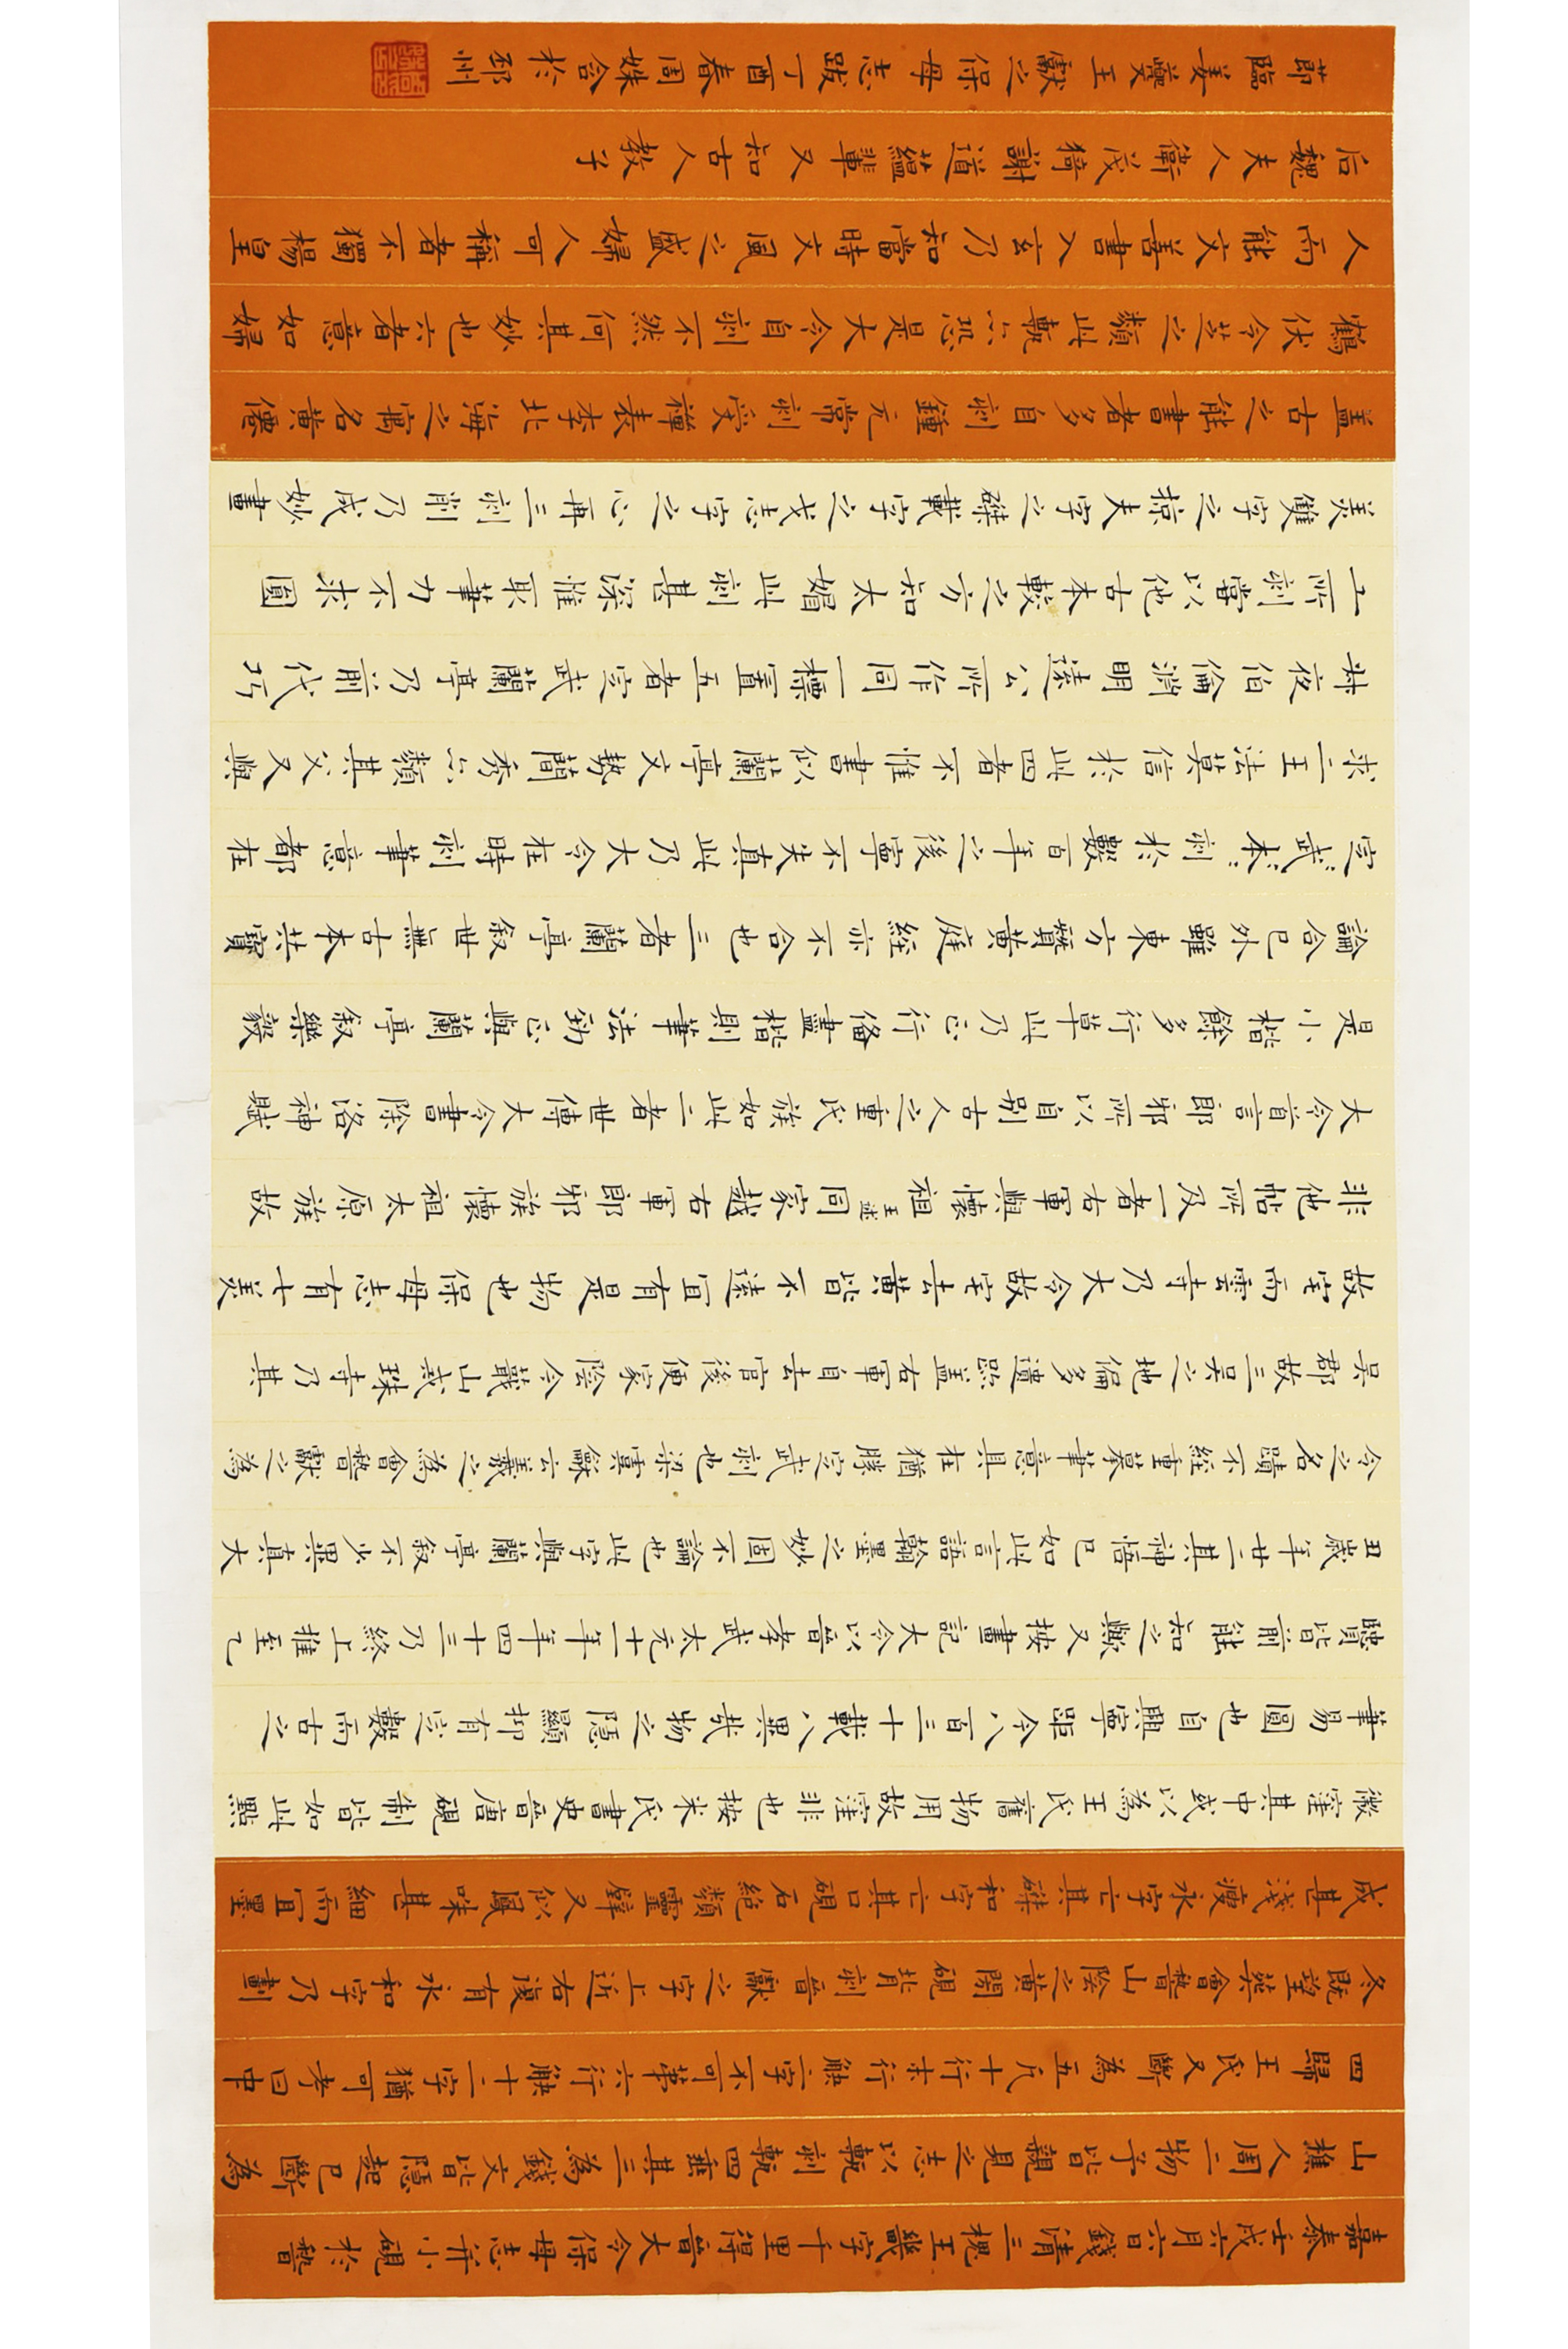 嘉泰壬戌六月六日錢清三槐王畿字千里得晉大令保母志并小硯於稽
山樵人周二物予皆親見之志以甎刻甎四垂其三為錢文皆隱起已斷為
四歸王氏又斷為五凡十行末行缺二字不可第六行缺十二字猶可考曰中
冬既望葬會稽山陰之黃閍硯背刻晉獻之字上近右復有永和字乃劃
成甚淺瘦永字亡其磔和字亡其口硯石絕類靈璧又似鳳咮甚細而宜墨
微窪其中或以為王氏舊物用故窪非也按米氏書史晉唐硯制皆如此點
筆易圓也自興寧距今八百三十載八異哉物之隱顯抑有定數而古之
賢皆前能知之歟又按畫記大令以晉孝武太元十一年年四十三乃終上推至乙
丑歲年廿二其神悟已如此言語翰墨之妙固不論也此字與蘭亭敘不少異真大
令之名蹟不經重摹筆意具在猶勝定武刻也梁虞龢云羲之為會稽獻之為
吳郡故三吳之地偏多遺跡蓋右軍自去官後便家陰今蕺山戒珠寺乃其
故宅而雲寺乃大令故宅去黃皆不遠宜有是物也保母志有七美
非他帖所及一者右軍與懷祖王述同家越右軍郎邪族懷祖太原族故
大令首言郎邪所以自别古人之重氏族如此二者世傳大令書除洛神賦
是小楷餘多行草此乃正行備盡楷則筆法勁正與蘭亭敘樂毅
論合已外雖東方贊黃庭經亦不合也三者蘭亭敘世無古本共寶
定武本刻於數百年之後寧不失真此乃大令在時刻筆意都在
求二王法莫信於此四者不惟書似蘭亭文勢簡秀亦類其父又與
叔夜伯倫淵明遠公所作同一標置五者定武蘭亭乃前代巧
工所刻嘗以他古本較之方知太媚此刻甚深惟取筆力不求圓
美雙字之掠夫字之磔載字之戈志字之心再三刻削乃成妙畫
蓋古之能書者多自刻鍾元常刻受禪表李北海之寓名黃僊
鶴伏令芝之類此甎亦恐是大令自刻不然何其妙也六者意如婦
人而能文善書入玄乃知當時文風之盛婦人可稱者不獨楊皇
后魏夫人衛茂猗謝道蘊輩又知古人教子
節臨姜夔王獻之保母志跋丁酉春周姝含於邳州